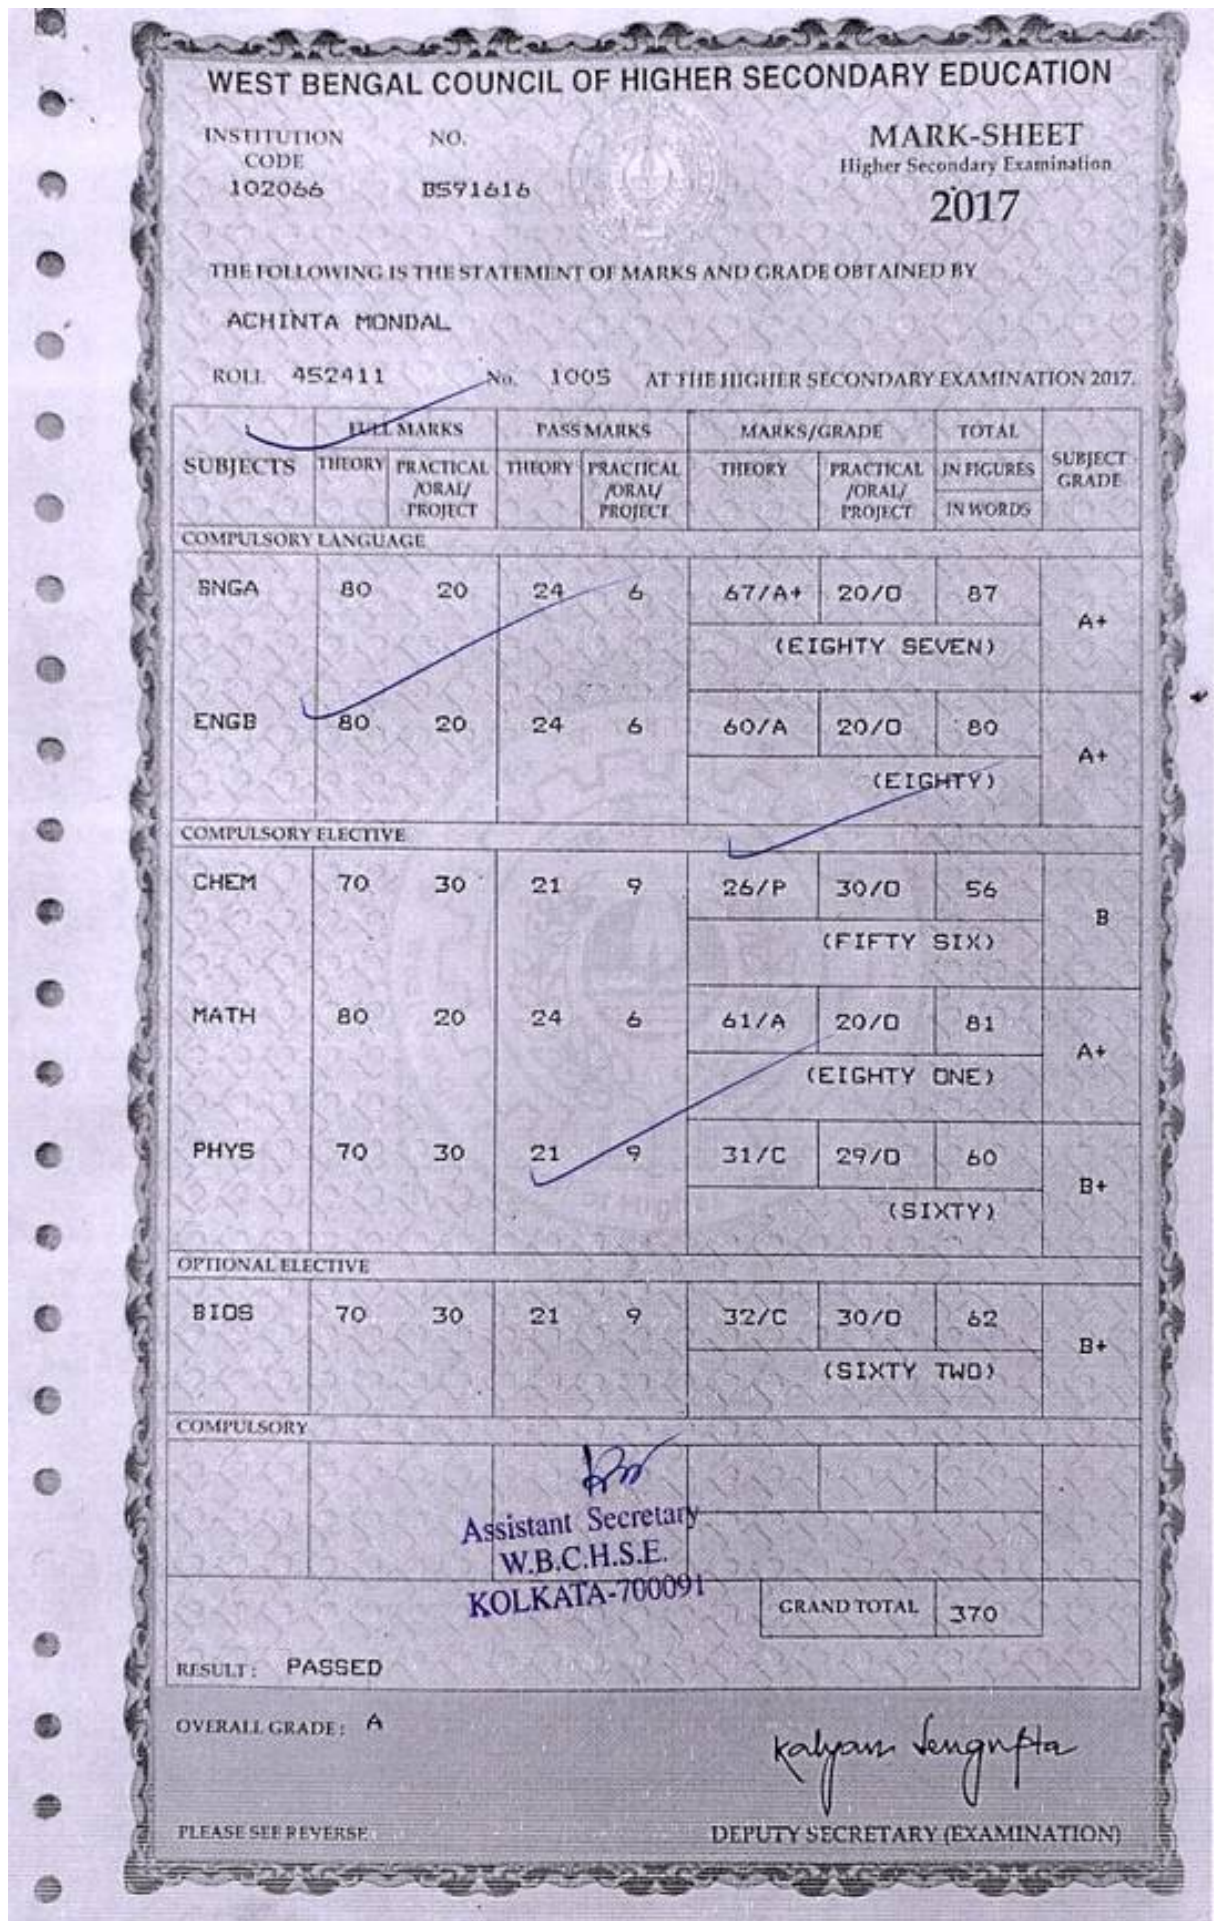 WEST BENGAL COUNCIL OF HIGHER SECONDARY EDUCATION
INSTITUTION CODE NO. MARK-SHEET
102066 B591616 Higher Secondary Examination
2017
THE FOLLOWING IS THE STATEMENT OF MARKS AND GRADE OBTAINED BY
ACHINTA MONDAL
ROLL 452411 No. 1005 AT THE HIGHER SECONDARY EXAMINATION 2017.
SUBJECTS FULL MARKS PASS MARKS MARKS/GRADE TOTAL SUBJECT GRADE
THEORY PRACTICAL /ORAL/ PROJECT THEORY PRACTICAL /ORAL/ PROJECT THEORY PRACTICAL /ORAL/ PROJECT IN FIGURES
IN WORDS
COMPULSORY LANGUAGE
SNGA 80 20 24 6 67/A+ 20/O 87 A+
(EIGHTY SEVEN)
ENGB 80 20 24 6 60/A 20/O 80 A+
(EIGHTY)
COMPULSORY ELECTIVE
CHEM 70 30 21 9 26/P 30/O 56 B
(FIFTY SIX)
MATH 80 20 24 6 61/A 20/O 81 A+
(EIGHTY ONE)
PHYS 70 30 21 9 31/C 29/O 60 B+
(SIXTY)
OPTIONAL ELECTIVE
BIOS 70 30 21 9 32/C 30/O 62 B+
(SIXTY TWO)
COMPULSORY
Assistant Secretary
W.B.C.H.S.E.
KOLKATA-700091
GRAND TOTAL 370
RESULT : PASSED
OVERALL GRADE : A
Kalyan Sengupta
PLEASE SEE REVERSE DEPUTY SECRETARY (EXAMINATION)